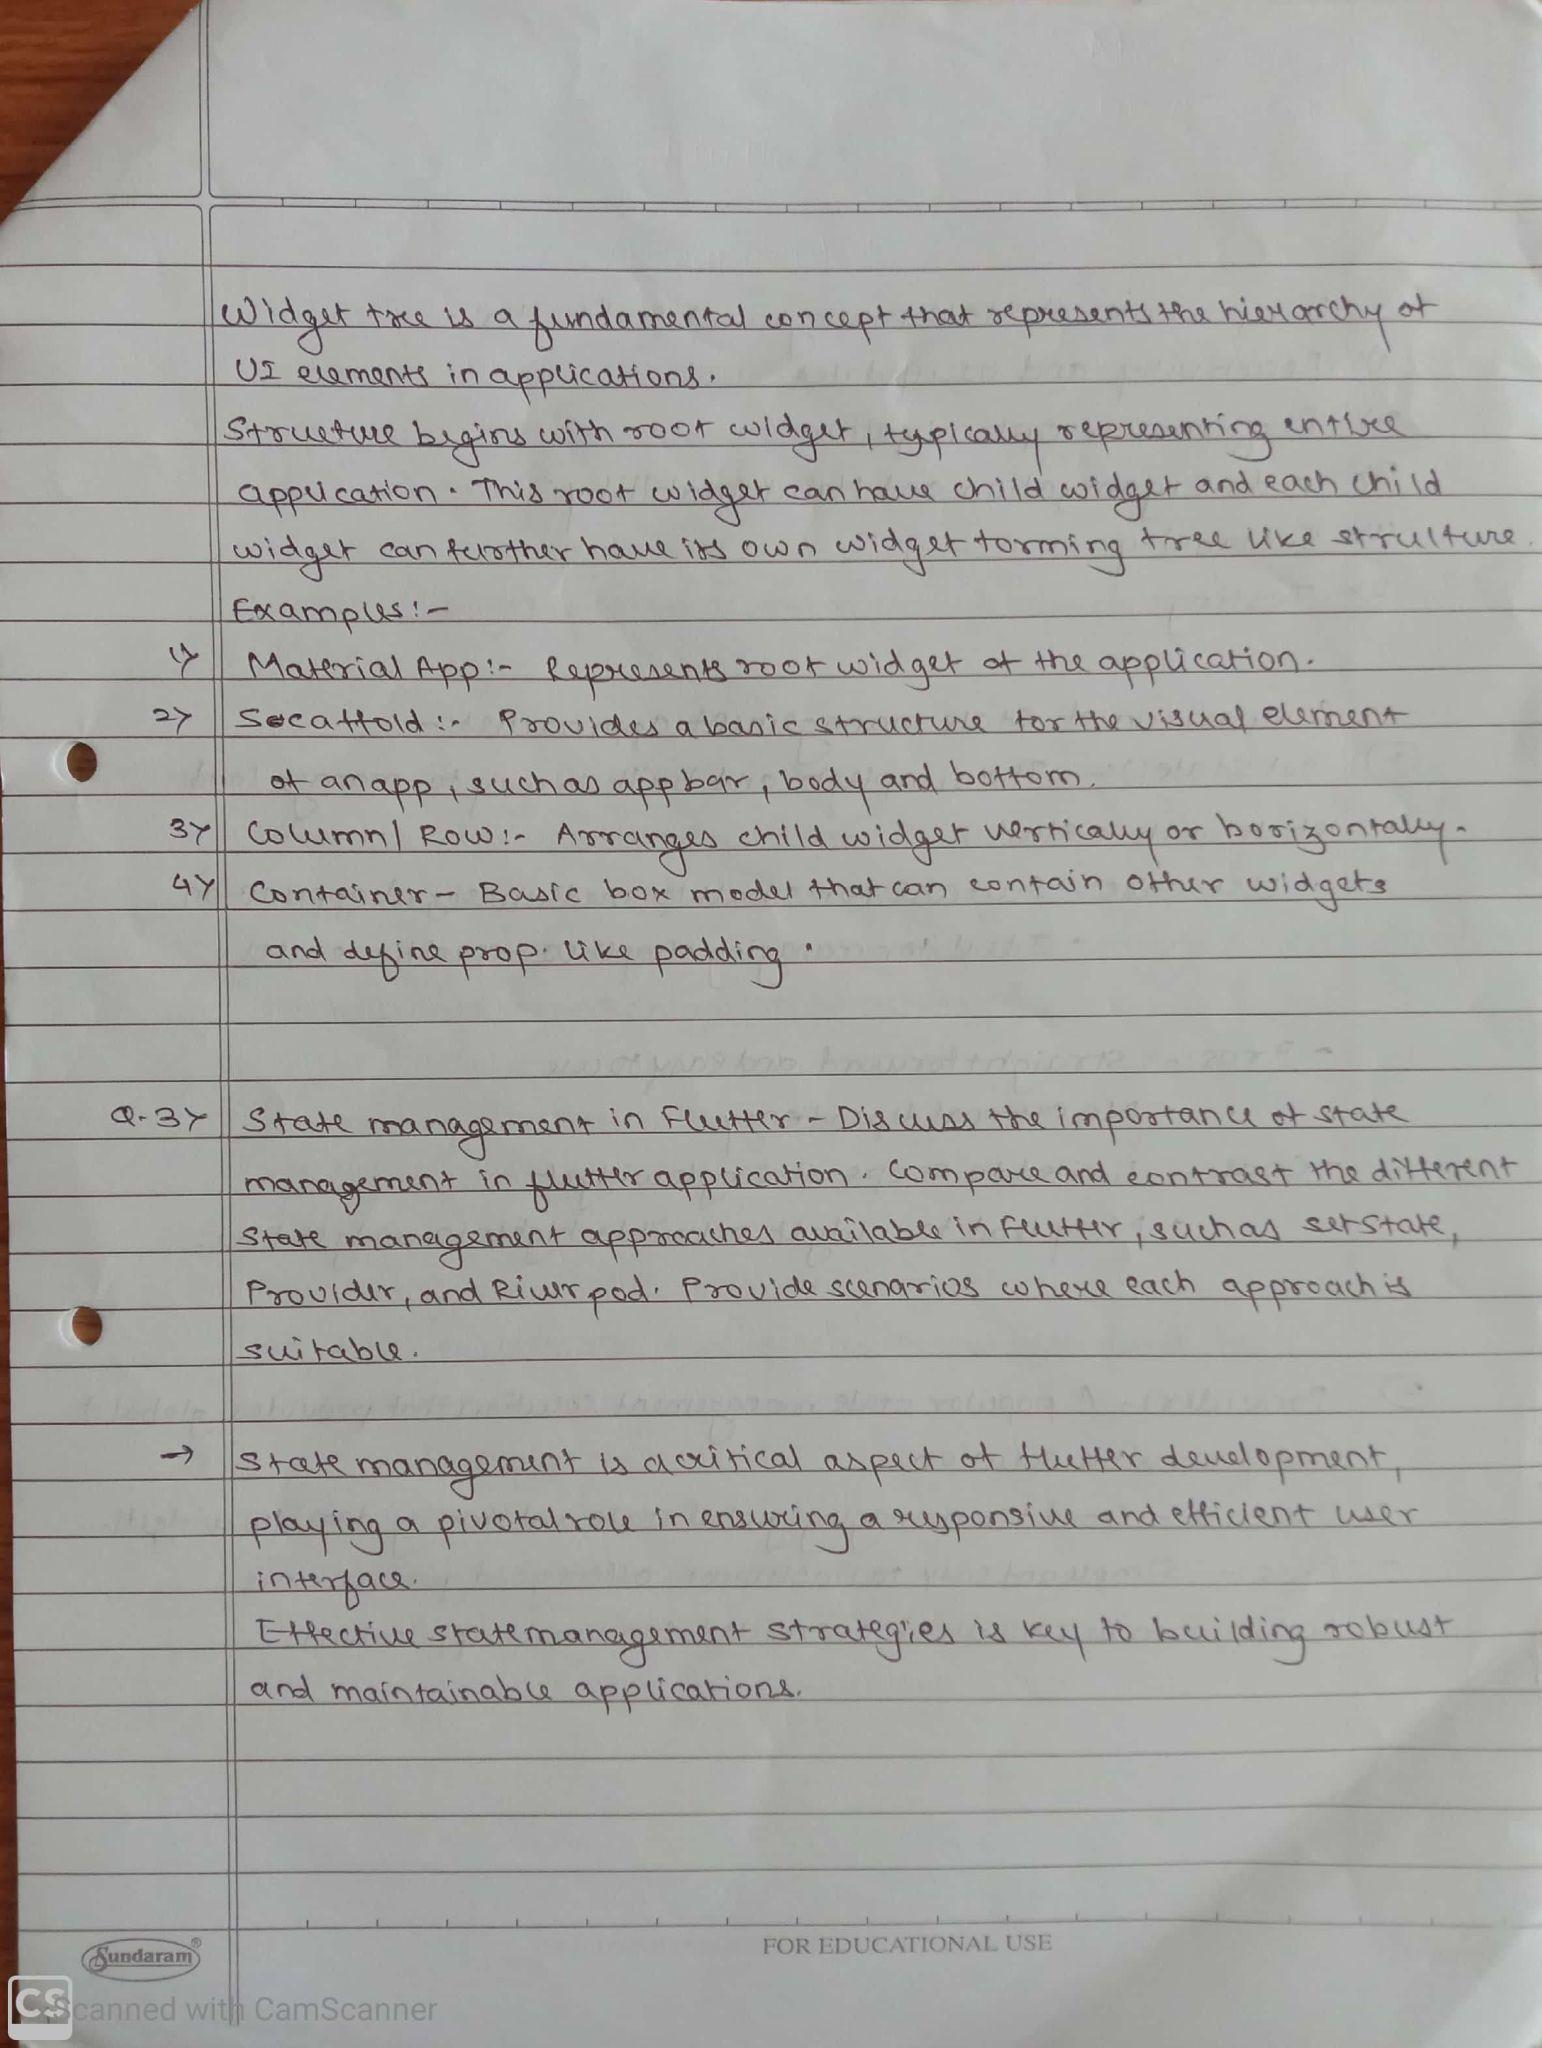 Widget tree is a fundamental concept that represents the hierarchy of
UI elements in applications.
Structure begins with root widget, typically representing entire
application. This root widget can have child widget and each child
widget can further have its own widget forming tree like strulture.
Examples:-
1> Material App:- Represents root widget of the application.
2> Socaffold:- Provides a basic structure for the visual element
of an app, such as app bar, body and bottom.
3> Column/Row:- Arranges child widget vertically or horizontally.
4> Container- Basic box model that can contain other widgets
and define prop. like padding.
Q.3> State management in Flutter - Discuss the importance of state
management in flutter application. Compare and contrast the different
state management approaches available in Flutter, such as setState,
Provider, and Riverpod. Provide scenarios where each approach is
suitable.
→ State management is a critical aspect of flutter development,
playing a pivotal role in ensuring a responsive and efficient user
interface.
Effective state management strategies is key to building robust
and maintainable applications.
FOR EDUCATIONAL USE
Sundaram®
CS Scanned with CamScanner